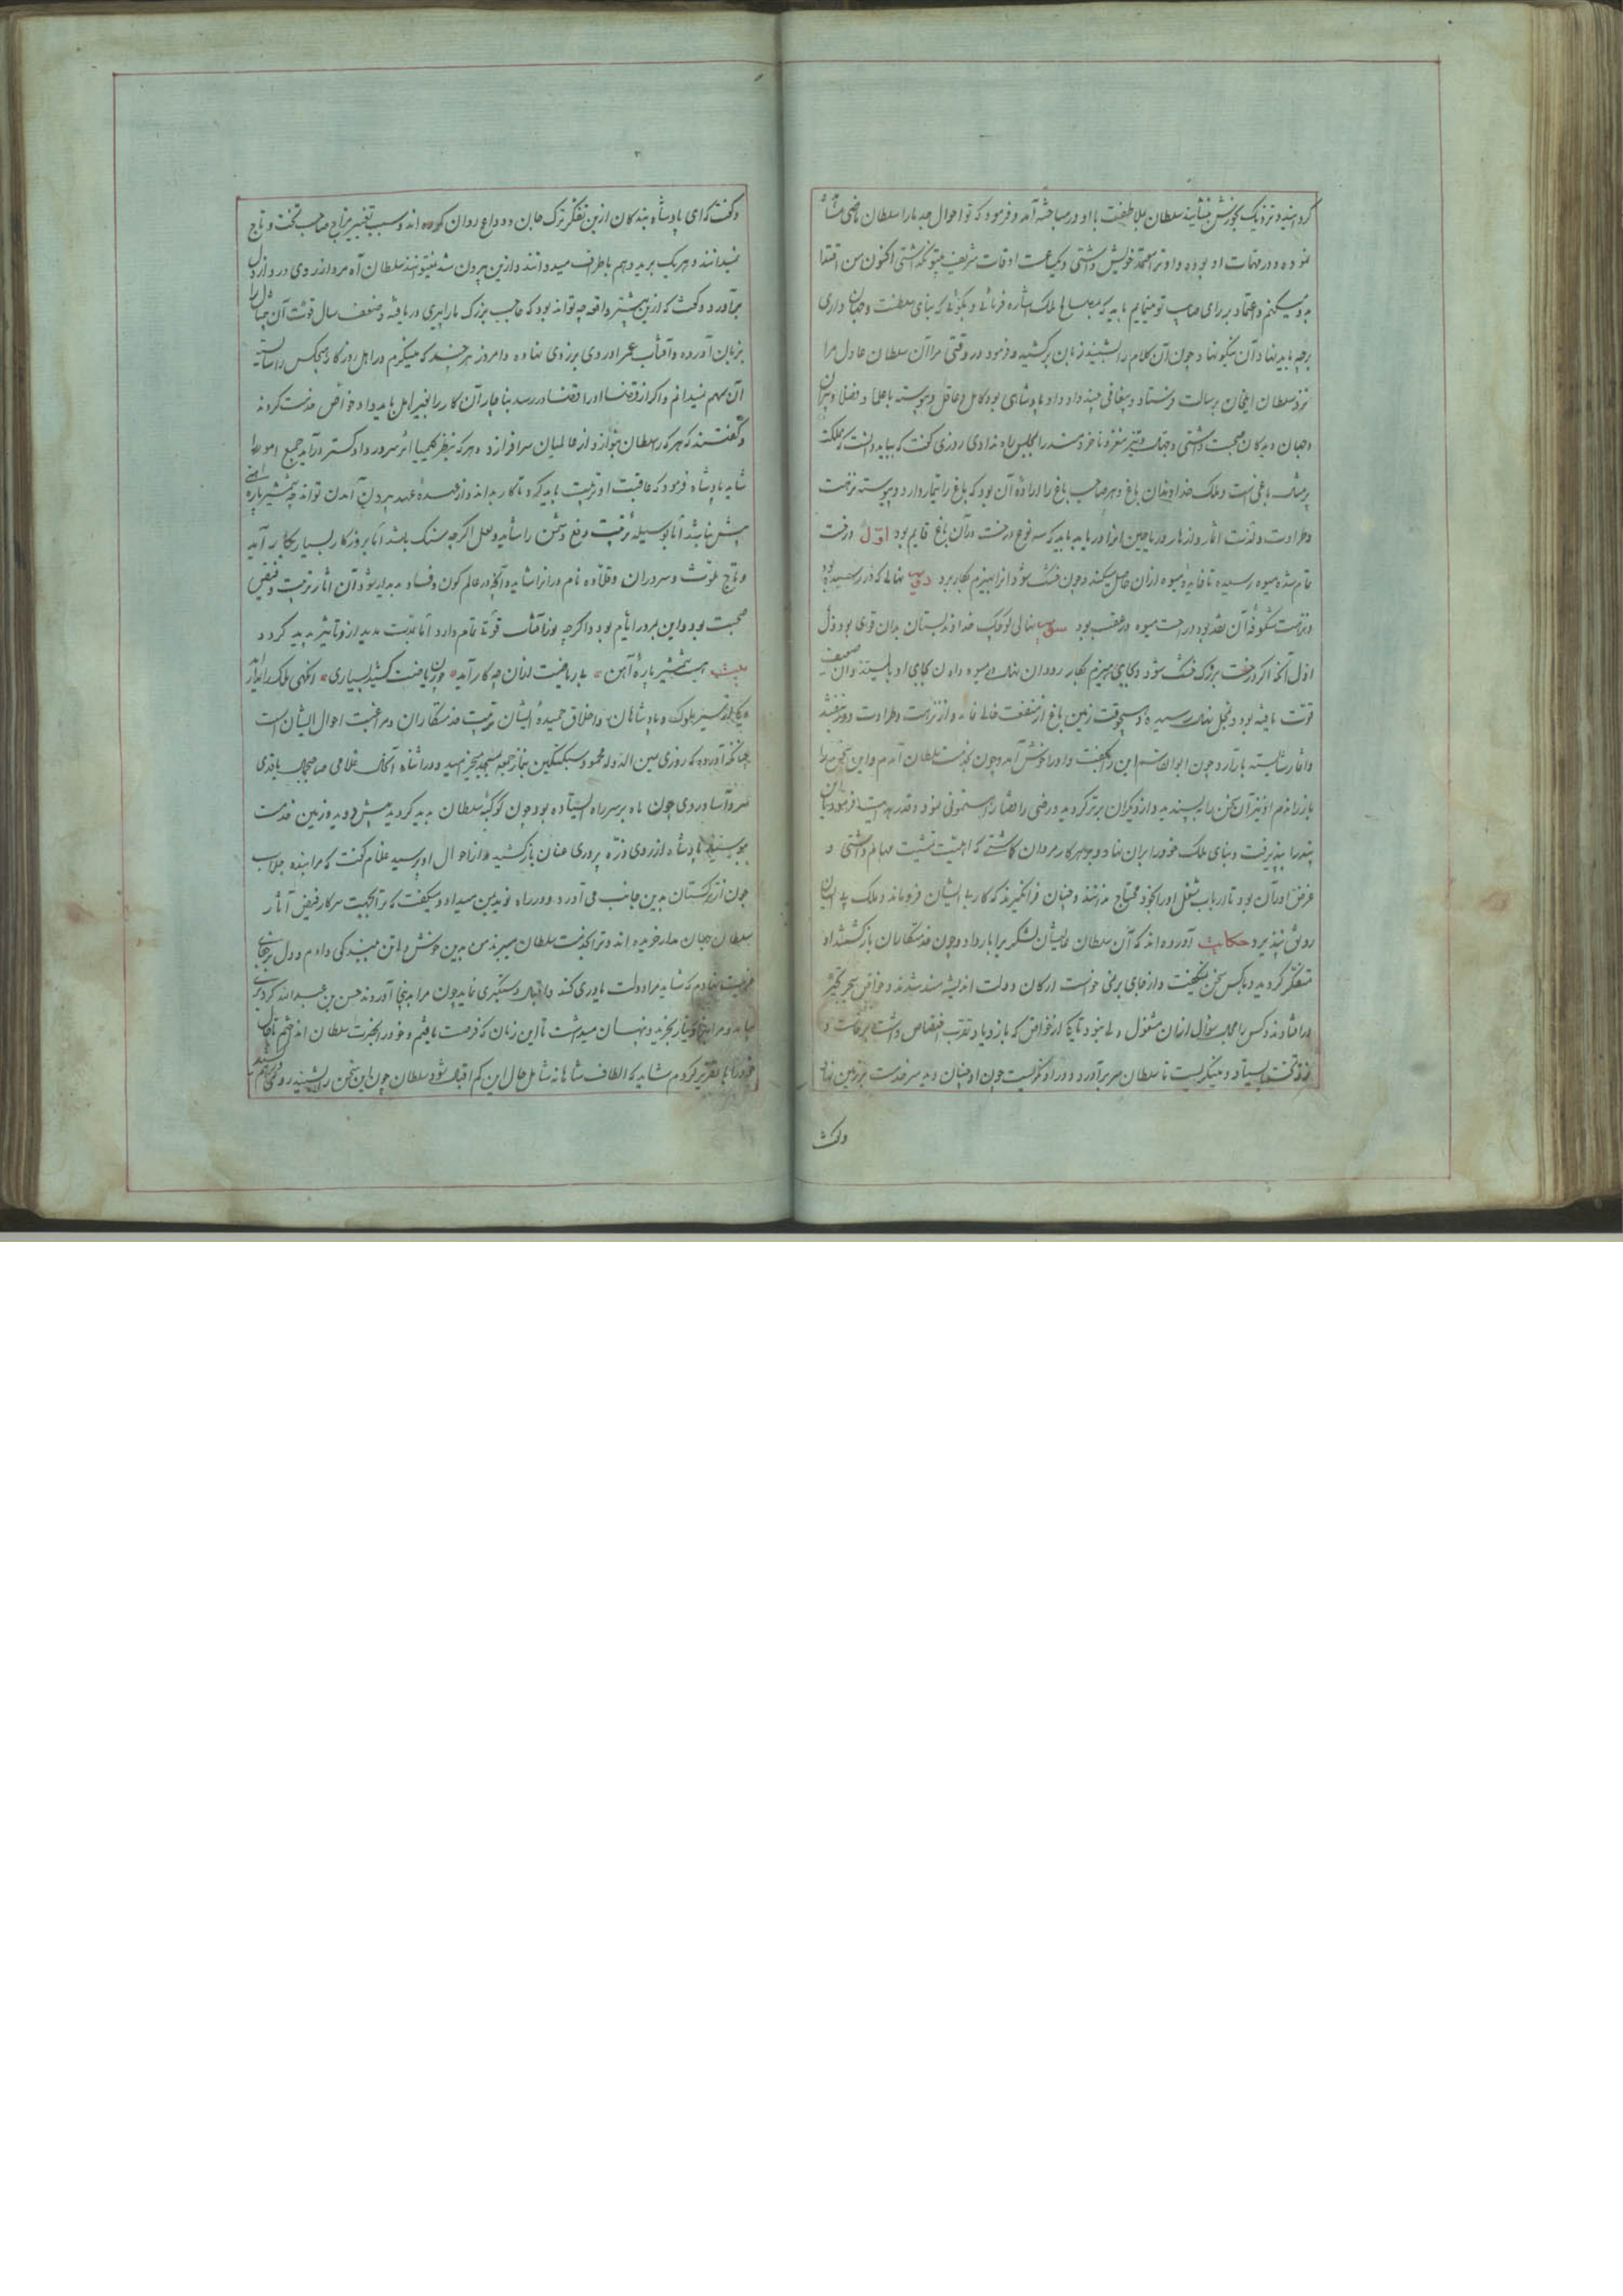 گردانید و نزدیک بخودش بنشانید سلطان بملاطفت با او در مباحثه آمد و فرمود که تو احوال جد ما را سلطان ماضی مشاهده
نموده و در مهمات او بوده و او ترا معتمد خویش داشتی و یکساعت اوقات شریف بیتو نگذاشتی اکنون من اقتدا
بدو میکنم و اعتماد بر رای صایب تو مینمایم باید که بمصالح ملک اشاره فرمائی و بگوئی که بنای سلطنت و جهان داری
بر چه باید نهاد آن نیکو نهاد چون آن کلام را بشنید زبان برکشید و فرمود در وقتی مرا آن سلطان عادل مرا
نزد سلطان ایلخان برسالت فرستاد و پیغامی چند داد و او پادشاهی بود کامل و عاقل و پیوسته با علما و فضلا و پیران
و جهان دیدکان صحبت داشتی و بجهان بی تیز مغز و ناخردمند را بمجلس راه ندادی روزی گفت که بباید دانست که مملکت
بر مثال باغی است و ملک خداوندان باغ و هر صاحب باغ را اراده آن بود که باغ را تیمار دارد و پیوسته نزهت
و طراوت و لذت اثمار و ازهار و ریاحین او را دریابد باید که سه نوع درخت در آن باغ قایم بود اول درخت
تمام شده میوه رسیده تا فایده میوه از آن حاصل میکند و چون خشک شود آنرا بهیزم بکار برد دویم نهالی که نو رسیده بود
و نزهت شکوفه آن نقد بود و راحت میوه در عقب بود سویم نهالی کوچک خداوند بستان بدان قوی بود دل
اول آنکه اگر درخت بزرک خشک شود و بجای هیزم بکار رود آن نهال در میوه دادن بجای او بایستد و آن ضعیف
قوت یافته بود و بمحل نهال رسیده و هیچوقت زمین باغ از منفعت خالی نماند و از نزهت و طراوت دور نیفتد
و اثمار شایسته بار آرد چون ابوالقاسم این را بگفت و او را خوش آمد و چون بخدمت سلطان آمدم و این سخن را
باز راندم او نیز آن سخن را بپسندید و از دیگران برتر گردید و رضی را قضا رهنمونی نمود و قدر بهدایت فرمود تا این
پند را بپذیرفت و بنای ملک خود را بر آن نهاد و بهر کار مردان کاشتی که اهلیت تمشیت مهام داشتی و
غرض او آن بود تا در باب شغل او را بخود محتاج ندانند و چنان فرا نگیرند که کار بی ایشان فرو ماند و ملک بی ایشان
رونق نپذیرد حکایت آورده اند که آن سلطان عالیشان لشکر برابار داد و چون خدمتکاران بازگشتند او
متفکر گردید و با کس سخن نمیگفت و از جای بر نمی خواست ارکان دولت اندیشه مند شدند و خواص به بحر تحیر
در افتادند و کس را مجال سوال از آن مشغولی نبود تا یکی از خواص که بازدیاد تقرب اختصاص داشت برخاست و
نزد تخت بایستاد و مینگریست تا سلطان سر برآورد و در او نگریست چون او چنان دید سر خدمت بر زمین نهاد
و گفت
و گفت که ای پادشاه بندکان ازین تفکر ترک جان و وداع روان کرده اند و سبب تغییر مزاج صاحب تخت و تاج
نمیدانند و هر یک بر بدد هم باطراف میدوانند و ازین بیرون شد نمیتوانند سلطان آه سرد از روی درد از دل
برآورد و گفت که ازین بیشتر واقعه چه تواند بود که حاجب بزرک ما را پیری دریافته و ضعف سال قوت آن چنان دل را
بزیان آورده و آفتاب عمر او روی بزردی نهاده و امروز هر چند که مینگرم در اهل روزگار هیچکس را شایسته
آن مهم نمیدانم و اگر از قضا او را اقتضا در رسد بناچار آن کار را بغیر اهل باید داد خواص خدمت کردند
و گفتند که هر که را سلطان بنوازد از عالمیان سرافرازد و هر که بنظر کیمیا اثر سرور دادگستر درآید جمیع امور را
شاید پادشاه فرمود که عاقبت او تربیت باید کرد تا کار بداند و از عهده عهد بیرون آمدن تواند چه شمشیر پاره آهنی
بیش نباشد اما بوسیله تربیت دفع دشمن را شاید و لعل اگر چه سنک باشد اما بروزگار بسیار بکار آید
و تاج ملوک و سروران و قلاده نام وران را شاید و آنچه در عالم کون و فساد پدیدار شود آن اثار تربیت و فیض
صحبت بود و این بمرور ایام بود و اگر چه نور آفتاب قوتی تمام دارد اما بمدت مدید از و تاثیر پدید گردد
بیت هست شمشیر پارۀ آهن * بی ریاضت از آن چه کار آید * چون ریاضت کشید بسیاری * انگهی ملک را بدار آید
و یکی از سیر ملوک و پادشاهان و اخلاق حمیدۀ ایشان تربیت خدمتکاران و مراقبت احوال ایشان است
چنانکه آورده که روزی یمین الدوله محمود سبکتکین بنماز جمعه بمسجد میخرامید و در اثناء آنحال غلامی صاحبجمال با قدی
سرو آسا و روی چون ماه بر سر راه ایستاده بود چون کوکبه سلطان بدید گردید پیش دوید و زمین خدمت
ببوسید پادشاه از روی ذره پروری عنان بازکشید و از احوال او پرسید غلام گفت که مرا بنده جلاب
چون از ترکستان بدین جانب می آورد و در راه نوید بمن میداد و میگفت که ترا بجهت سرکار فیض آثار
سلطان جهان مدار خریده اند و ترا بخدمت سلطان میبرند من بدین خوش دل تن ببندکی دادم و دل بر جای
غربت نهادم که شاید مرا دولت یاوری کند و اقبال دستگیری نماید چون مرا بدینجا آوردند حسن بن عبدالله کرد مرا
بدید و مرا بهزار دینار بخرید و پنهان میداشت تا این زمان که فرصت یافتم و خود را بحضرت سلطان انداختم تا حال
خود را تقریر کردم شاید که الطاف شاهانه شامل حال این کم اقبال شود سلطان چون این سخن را بشنید روی در هم کشید